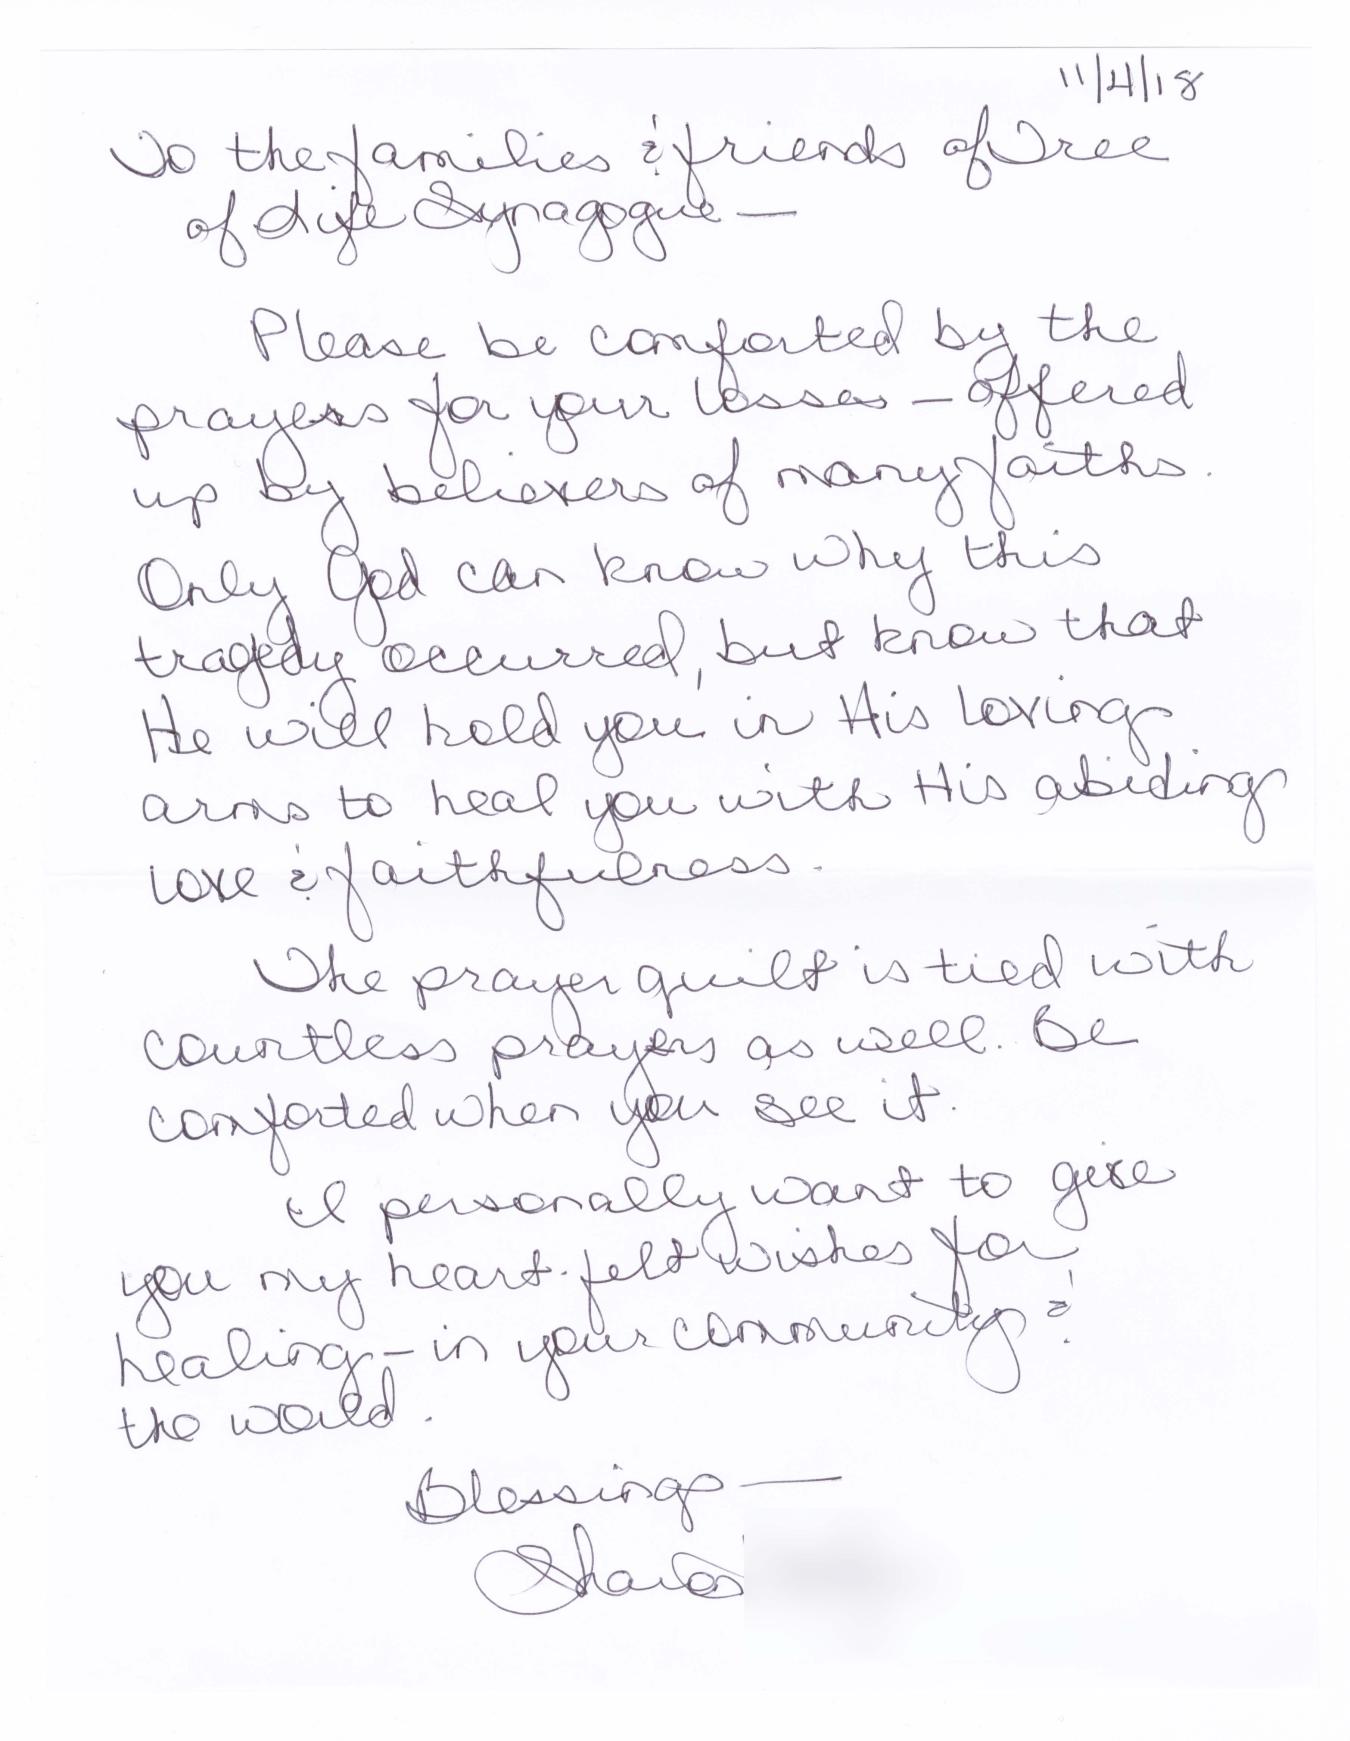 11/4/18
To the families & friends of Tree
of Life Synagogue —
Please be comforted by the
prayers for your losses — offered
up by believers of many faiths.
Only God can know why this
tragedy occurred, but know that
He will hold you in His loving
arms to heal you with His abiding
love & faithfulness.
The prayer quilt is tied with
countless prayers as well. Be
comforted when you see it.
I personally want to give
you my heart-felt wishes for
healing – in your community &
the world.
Blessings —